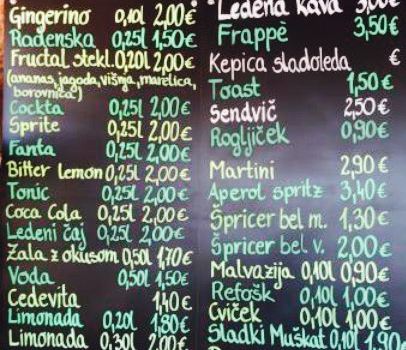 Gingerino 0,10l 2,00€
Radenska 0,25l 1,50€
Fructal stekl. 0,20l 2,00€
(ananas, jagoda, višnja, marelica,
borovnica)
Cockta 0,25l 2,00€
Sprite 0,25l 2,00€
Fanta 0,25l 2,00€
Bitter Lemon 0,25l 2,00€
Tonic 0,25l 2,00€
Coca Cola 0,25l 2,00€
Ledeni čaj 0,25l 2,00€
Zala z okusom 0,50l 1,70€
Voda 0,50l 1,50€
Cedevita 1,40€
Limonada 0,20l 1,80€
Limonada 0,30l 2,00€
Ledena kava 3,00€
Frappè 3,50€
Kepica sladoleda €
Toast 1,50€
Sendvič 2,50€
Rogljiček 0,90€
Martini 2,90€
Aperol spritz 3,40€
Špricer bel m. 1,30€
Špricer bel v. 2,00€
Malvazija 0,10l 0,90€
Refošk 0,10l 1,00€
Cviček 0,10l 1,00€
Sladki Muškat 0,10l 1,90€